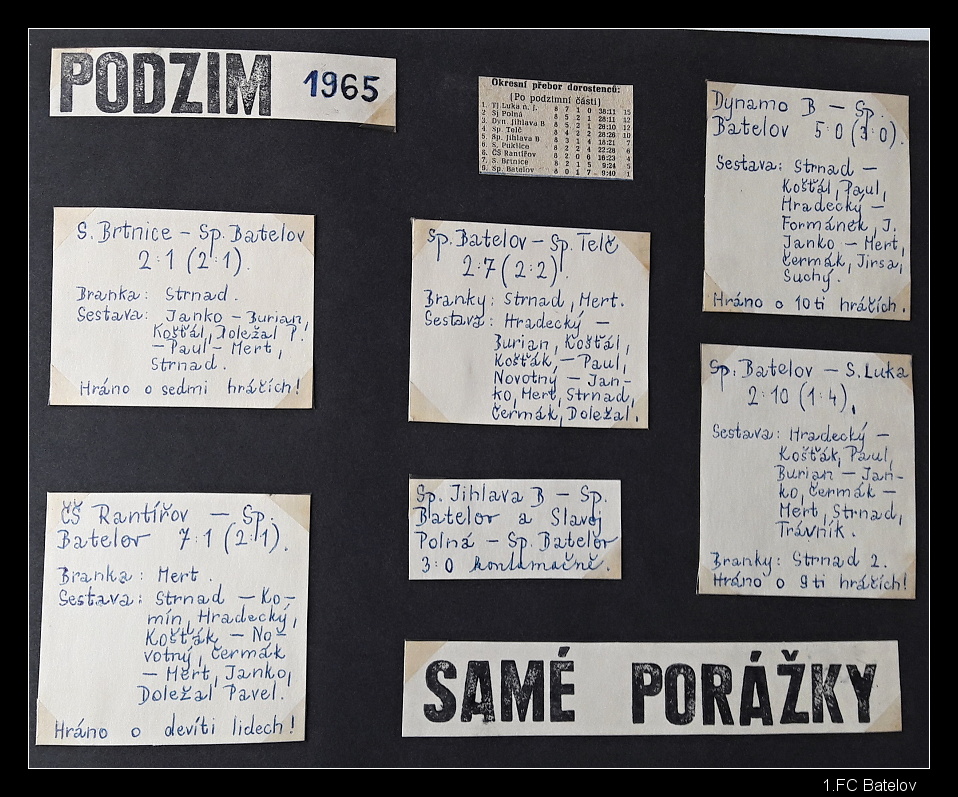 PODZIM 1965
Okresní přebor dorostenců:
(Po podzimní části)
1. TJ Luka n. J. 8 7 1 0 38:11 15
2. Sj Polná 8 5 2 1 28:11 12
3. Dyn. Jihlava B 8 5 2 1 26:10 12
4. Sp. Telč 8 4 2 2 28:26 10
5. Sp. Jihlava B 8 3 1 4 18:21 7
6. S. Puklice 8 2 2 4 22:28 6
8. ČŠ Rantířov 8 2 0 6 16:23 4
7. S. Brtnice 8 2 1 5 9:24 5
9. Sp. Batelov 8 0 1 7 9:40 1
Dynamo B – Sp.
Batelov 5:0 (3:0).
Sestava: Strnad –
Košťál, Paul,
Hradecký –
Formánek, J.
Janko – Mert,
Čermák, Jirsa,
Suchý.
Hráno o 10ti hráčích.
S. Brtnice – Sp. Batelov
2:1 (2:1).
Branka: Strnad.
Sestava: Janko – Burian,
Košťál, Doležal P.
– Paul – Mert,
Strnad.
Hráno o sedmi hráčích!
Sp. Batelov – Sp. Telč
2:7 (2:2).
Branky: Strnad, Mert.
Sestava: Hradecký –
Burian, Košťál,
Košťák – Paul,
Novotný – Jan-
ko, Mert, Strnad,
Čermák, Doležal.
Sp. Batelov – S. Luka
2:10 (1:4).
Sestava: Hradecký –
Košťák, Paul,
Burian – Jan-
ko, Čermák –
Mert, Strnad,
Trávník.
Branky: Strnad 2.
Hráno o 9ti hráčích!
ČŠ Rantířov – Sp.
Batelov 7:1 (2:1).
Branka: Mert.
Sestava: Strnad – Ko-
mín, Hradecký,
Košťák – No-
votný, Čermák
– Mert, Janko,
Doležal Pavel.
Hráno o devíti lidech!
Sp. Jihlava B – Sp.
Batelov a Slavoj
Polná – Sp. Batelov
3:0 kontumačně.
SAMÉ PORÁŽKY
1.FC Batelov